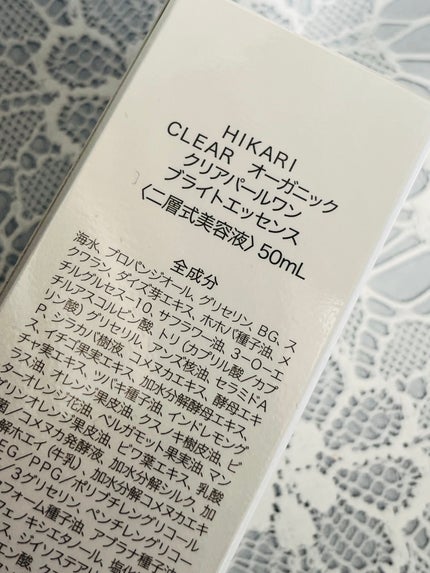 HIKARI
CLEAR オーガニック
クリアパールワン
ブライトエッセンス
〈二層式美容液〉50mL
全成分
海水、プロパンジオール、グリセリン、BG、ス
クワラン、ダイズ芽エキス、ホホバ種子油、メ
チルグルセス-10、サフラワー油、3-O-エ
チルアスコルビン酸、トリ(カプリル酸/カプ
リン酸)グリセリル、アンズ核油、セラミドA
P、シラカバ樹液、コメヌカエキス、酵母エキ
ス、イチゴ果実エキス、加水分解酵母エキス、
チャ実エキス、ツバキ種子油、インドレモング
ラス油、オレンジ果皮油、クスノキ樹皮油、ビ
ターオレンジ花油、ベルガモット果実油、マン
ダリンオレンジ果皮油、ビワ葉エキス、乳酸
/コメヌカ発酵液、加水分解シルク、加
解ホエイ(牛乳)、加水分解コメヌカエキ
EG/PPG/ポリブチレングリコール
/3グリセリン、ペンチレングリコー
フォーム種子油、アブラナ種子油
フェノキシエタノール、塩化
ス、ジイソステアリ